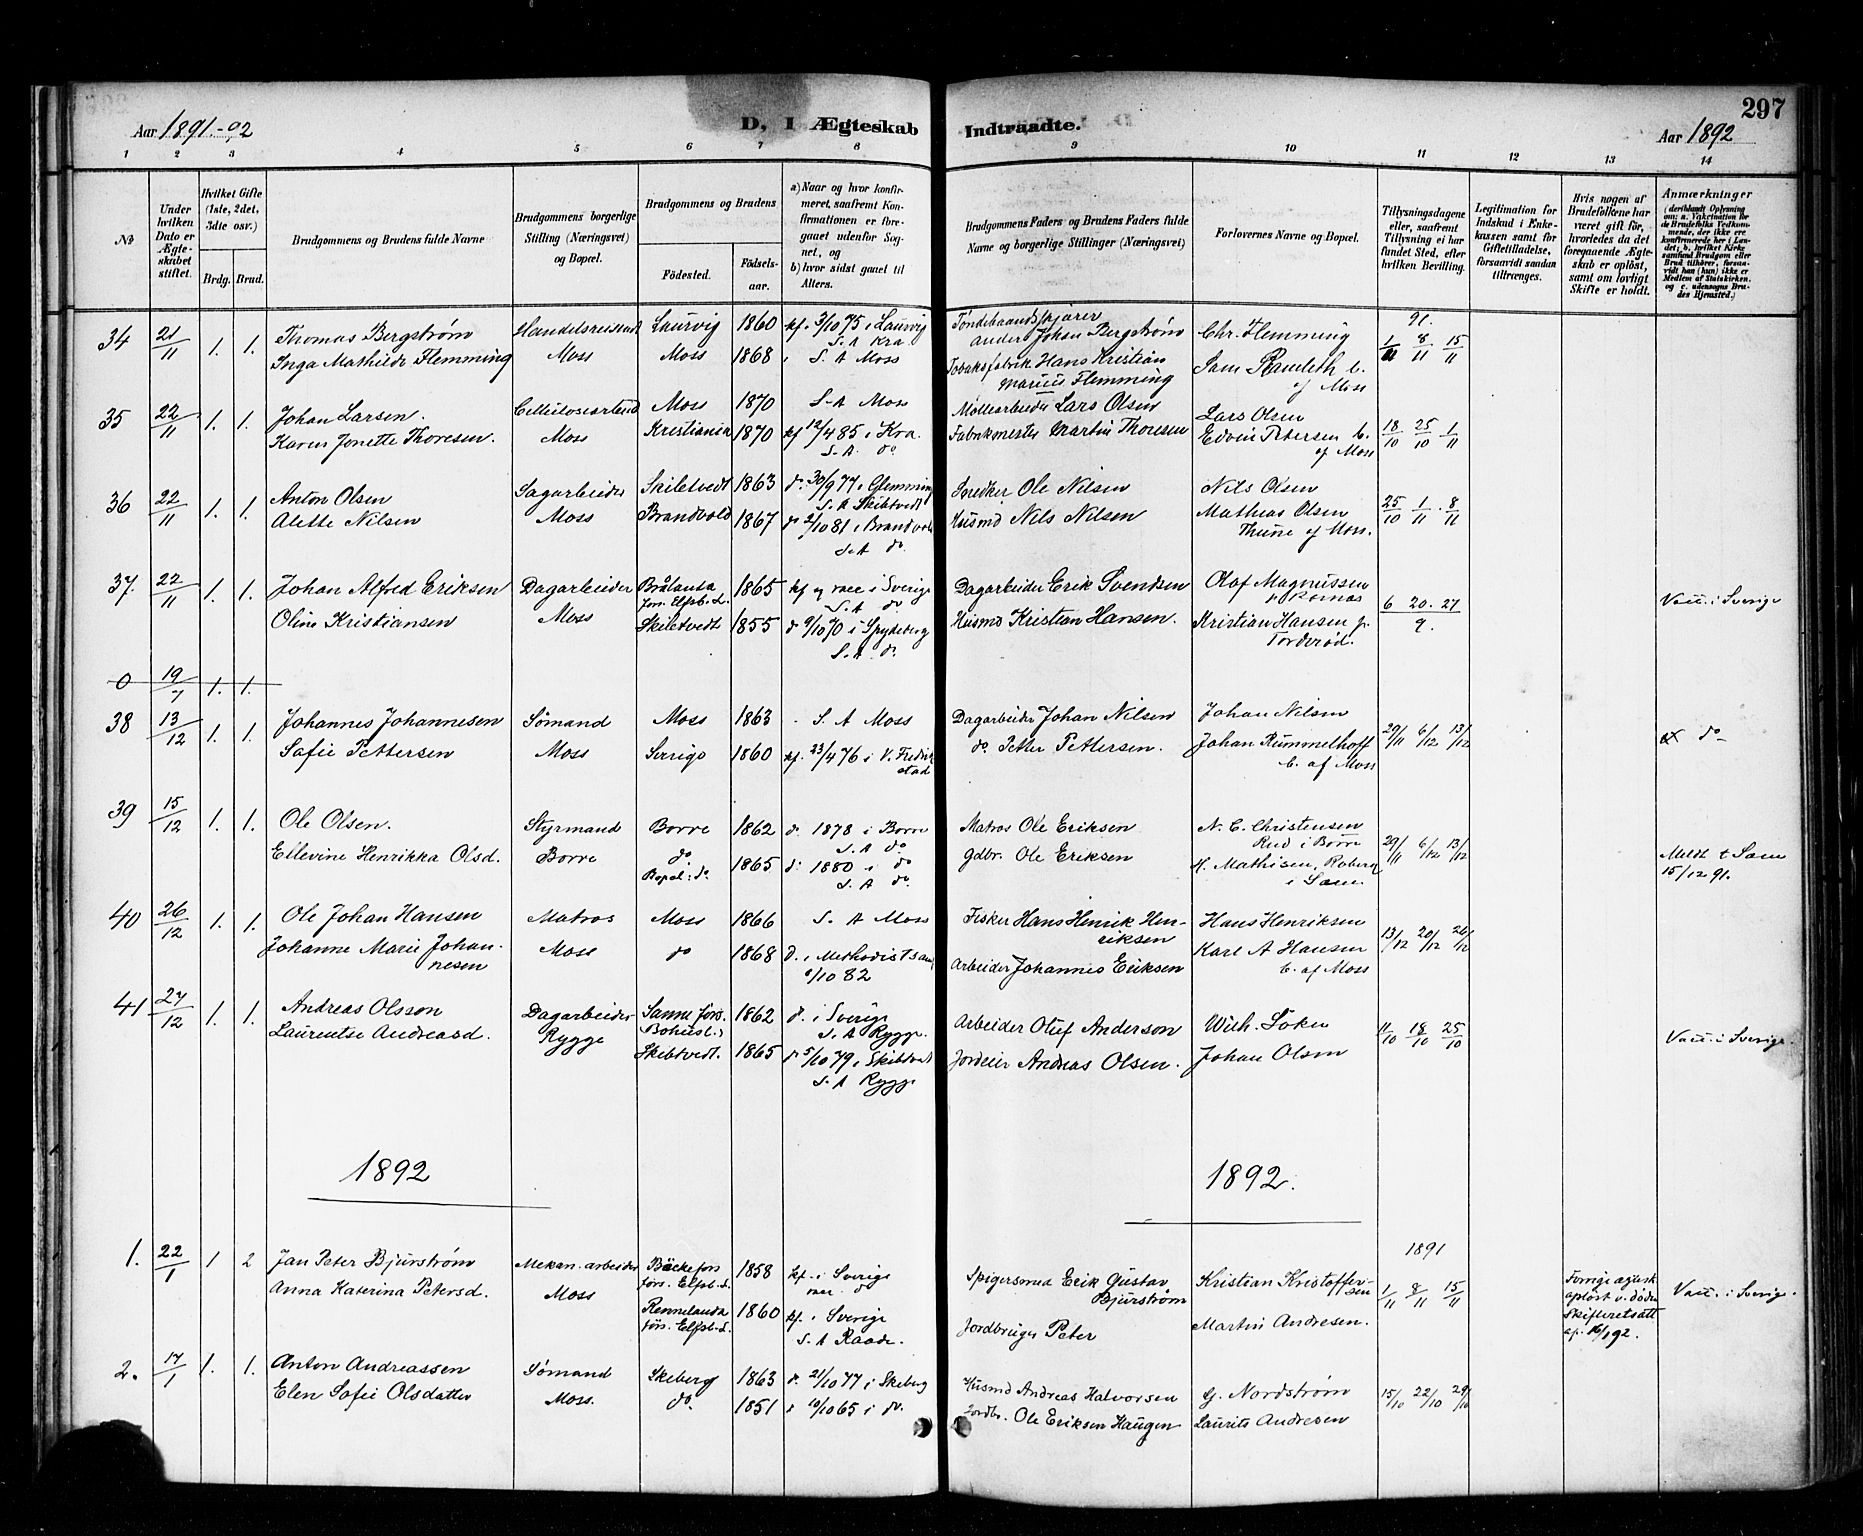 297
Aar 1891-92 D, 1 Ægteskab Indtraadte. Aar 1892
1 2 3 4 5 6 7 8 9 10 11 12 13 14
No
Under hvilken Dato er Ægteskabet stiftet.
Hvilket Gifte (1ste, 2det, 3die osv.)
Brdg. Brud.
Brudgommens og Brudens fulde Navne
Brudgommens borgerlige Stilling (Næringsvei) og Bopæl.
Brudgommens og Brudens
Födested. Födselsaar.
a) Naar og hvor konfirmeret, saafremt Konfirmationen er foregaaet udenfor Sognet, og
b) hvor sidst gaaet til Alters.
Brudgommens Faders og Brudens Faders fulde Navne og borgerlige Stillinger (Næringsvei)
Forlovernes Navne og Bopæl.
Tillysningsdagene eller, saafremt Tillysning ei har fundet Sted, efter hvilken Bevilling.
Legitimation for Indskud i Enkekassen samt for Giftetilladelse, forsaavidt saadan tiltrænges.
Hvis nogen af Brudefolkene har været gift för, hvorledes da det foregaaende Ægteskab er oplöst, samt om lovligt Skifte er holdt.
Anmærkninger
34 21/11 1. 1. Thomas Bergstrøm Handelsreisende Laurvig 1860 kf. 3/10 75 i Laurvig S. A Kra. Tøndebaandsskjærer Anders Johan Bergstrøm Chr. Flemming 91. 1/11 8/11 15/11
Inga Mathilde Flemming Moss Moss 1868 S. A Moss Tobaksfabrik Hans Kristian Marius Flemming Sam b. af Moss
35 22/11 1. 1. Johan Larsen. Cellulosearbeid Moss 1870 S. A Moss Møllearbeider Lars Olsen Lars Olsen 18/10 25/10 1/11
Karen Jonette Thoresen. Moss Kristiania 1870 kf 12/4 85 i Kra. S. A. do Fabrikmester Martin Thoresen Edvin Petersen b. af Moss
36 22/11 1. 1. Anton Olsen Sagarbeider Skibtvedt 1863 do 30/9 77 i Glemming S. A Skibtvedt Snedker Ole Nilsen Nils Olsen 25/10 1/11 8/11
Alette Nilsen Moss Brandvold 1867 do 2/10 81 i Brandvold S. A do. Husmd Nils Nilsen Mathias Olsen Thune af Moss.
37. 22/11 1. 1. Johan Alfred Eriksen Dagarbeider Brålanda förs. Elfsb. L. 1865 kf og vacc i Sverige S. A do Dagarbeider Erik Svendsen Olaf Magnussen 6 20. 27 9. Vacc. i Sverige
Oline Kristiansen Moss Skibtvedt 1855 do 9/10 70 i Spydeberg S. A. do. Husmd Kristian Hansen. Kristian Hansen p. Torderød.
0 19/7 1. 1.
38 13/12 1. 1. Johannes Johannesen Sømand Moss 1863 S. A Moss Dagarbeider Johan Nilsen Johan Nilsen 29/11 6/12 13/12 do
Safie Pettersen Moss Sverige 1860 kf. 23/4 76 i V. Fredrikstad do. Petter Pettersen. Johan Rummelhoff b. af Moss
39 15/12 1. 1. Ole Olsen. Styrmand Borre 1862 do. 1878 i Borre S. A do Matros Ole Eriksen N. C. Christensen Rud i Borre 29/11 6/12 13/12
Ellevine Henrikka Olsd. Borre do Bopel: do. 1865 do 1880 i do S. A do. Gdbr. Ole Eriksen H. Mathisen, Roberg i Sæm. Meldt t Sæm 15/12 91.
40 26/12 1. 1. Ole Johan Hansen Matros Moss 1866 S. A Moss Fisker Hans Henrik Henriksen Hans Henriksen 13/12 20/12 26/12
Johanne Marie Johannesen Moss do 1868 d. i Methodistsamf 6/10 82 Arbeider Johannes Eriksen Karl A Hansen b. af Moss
41 27/12 1. 1. Andreas Olsson Dagarbeider Sanne förs. Bohusl. 1862 d. i Sverige S. A Rygge. Arbeider Oluf Anderson Wilh. Loken 11/10 18/10 25/10 Vacc. i Sverige.
Laurentse Andreasd. Rygge Skibtvedt. 1865 do 5/10 79 i Skibtvedt S. A Rygge Jordeier Andreas Olsen. Johan Olsen
1892 1892.
1. 22/1 1 2 Jan Peter Bjurstrøm Mekan. arbeider Bäckefors förs. Elfsb. L. 1858 kf. i Sverige vac. do Spigersmed Erik Gustav Bjurstrøm Kristian Kristoffersen 1891 1/11 8/11 15/11 Forrige ægtesk opløst v. døden Skifteretsatt af. 16/1 92. Vacc. i Sverige.
Anna Katerina Petersd. Moss Rennelanda förs. Elfsb. L. 1860 kf. i Sverige S. A Raade. Jordbruger Peter Martin Andresen.
2. 17/1 1. 1. Anton Andreassen Sømand Skeberg 1863 d. 21/10 77 i Skeberg Husmd Andreas Halvorsen G. Nordstrøm 15/10 22/10 29/10
Elen Sofie Olsdatter Moss. do. 1851 10/10 65 i do. Jordbr. Ole Eriksen Haugen Laurits Andresen